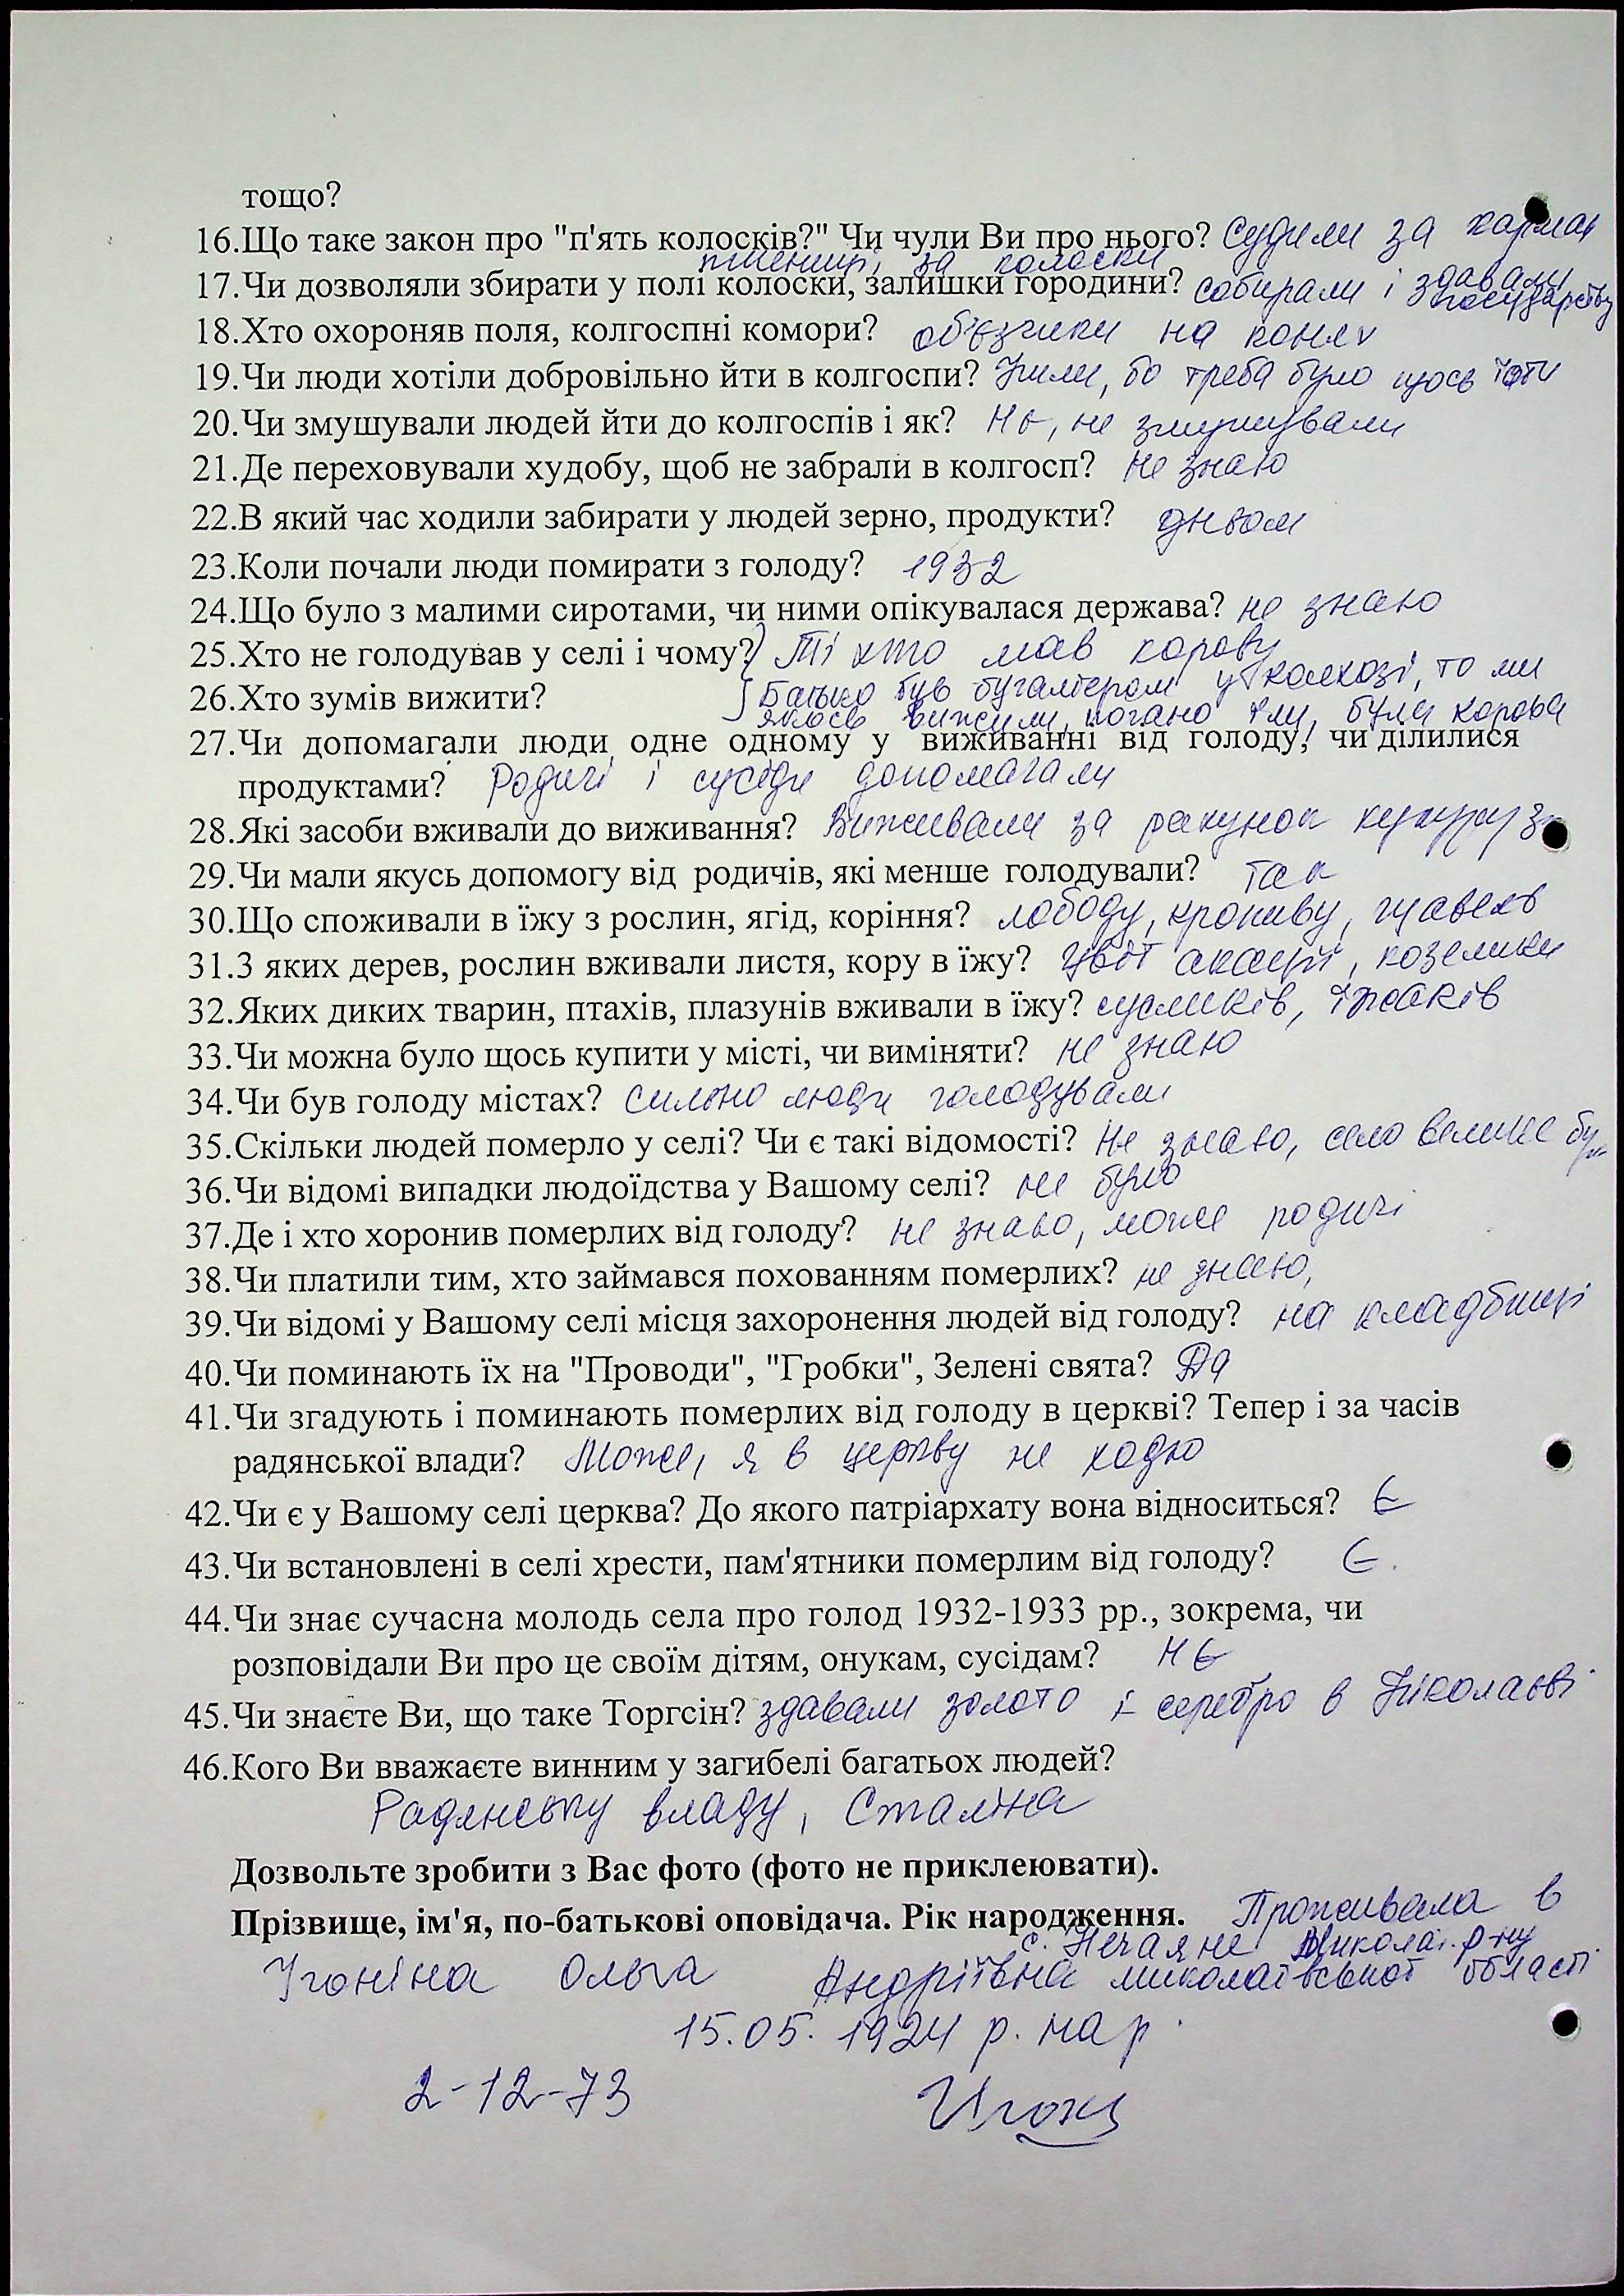 тощо?
16.Що таке закон про "п'ять колосків?" Чи чули Ви про нього? Судили за карман
пшениці, за колоски
17.Чи дозволяли збирати у полі колоски, залишки городини? собирали і здавали государству
18.Хто охороняв поля, колгоспні комори? об'єзчики на конях
19.Чи люди хотіли добровільно йти в колгоспи? Йшли, бо треба було щось їсти
20.Чи змушували людей йти до колгоспів і як? Нє, не змушували
21.Де переховували худобу, щоб не забрали в колгосп? не знаю
22.В який час ходили забирати у людей зерно, продукти? дньом
23.Коли почали люди помирати з голоду? 1932
24.Що було з малими сиротами, чи ними опікувалася держава? не знаю
25.Хто не голодував у селі і чому? Ті хто мав корову
26.Хто зумів вижити? Батько був бугалтером у колхозі, то ми
якось вижили, погано їли, була корова
27.Чи допомагали люди одне одному у виживанні від голоду, чи ділилися
продуктами? Родичі і сусіди допомагали
28.Які засоби вживали до виживання? Виживали за рахунок кукурузи
29.Чи мали якусь допомогу від родичів, які менше голодували? так
30.Що споживали в їжу з рослин, ягід, коріння? лободу, кропиву, щавель
31.З яких дерев, рослин вживали листя, кору в їжу? цвіт акації, козелики
32.Яких диких тварин, птахів, плазунів вживали в їжу? сусликів, їжаків
33.Чи можна було щось купити у місті, чи виміняти? не знаю
34.Чи був голоду містах? сильно люди голодували
35.Скільки людей померло у селі? Чи є такі відомості? Не знаю, село велике
36.Чи відомі випадки людоїдства у Вашому селі? не було
37.Де і хто хоронив померлих від голоду? не знаю, може родичі
38.Чи платили тим, хто займався похованням померлих? не знаю,
39.Чи відомі у Вашому селі місця захоронення людей від голоду? на кладбищі
40.Чи поминають їх на "Проводи", "Гробки", Зелені свята? Да
41.Чи згадують і поминають померлих від голоду в церкві? Тепер і за часів
радянської влади? Може, я в церкву не ходю
42.Чи є у Вашому селі церква? До якого патріархату вона відноситься? Є
43.Чи встановлені в селі хрести, пам'ятники померлим від голоду? Є.
44.Чи знає сучасна молодь села про голод 1932-1933 рр., зокрема, чи
розповідали Ви про це своїм дітям, онукам, сусідам? Нє
45.Чи знаєте Ви, що таке Торгсін? здавали золото і серебро в Ніколаєві
46.Кого Ви вважаєте винним у загибелі багатьох людей?
Радянську владу, Сталіна
Дозвольте зробити з Вас фото (фото не приклеювати).
Прізвище, ім'я, по-батькові оповідача. Рік народження. Проживала в
с. Нечаяне Микола. р-ну
Ігоніна Ольга Андріївна миколаївської області
15.05. 1924 р. нар.
2-12-73